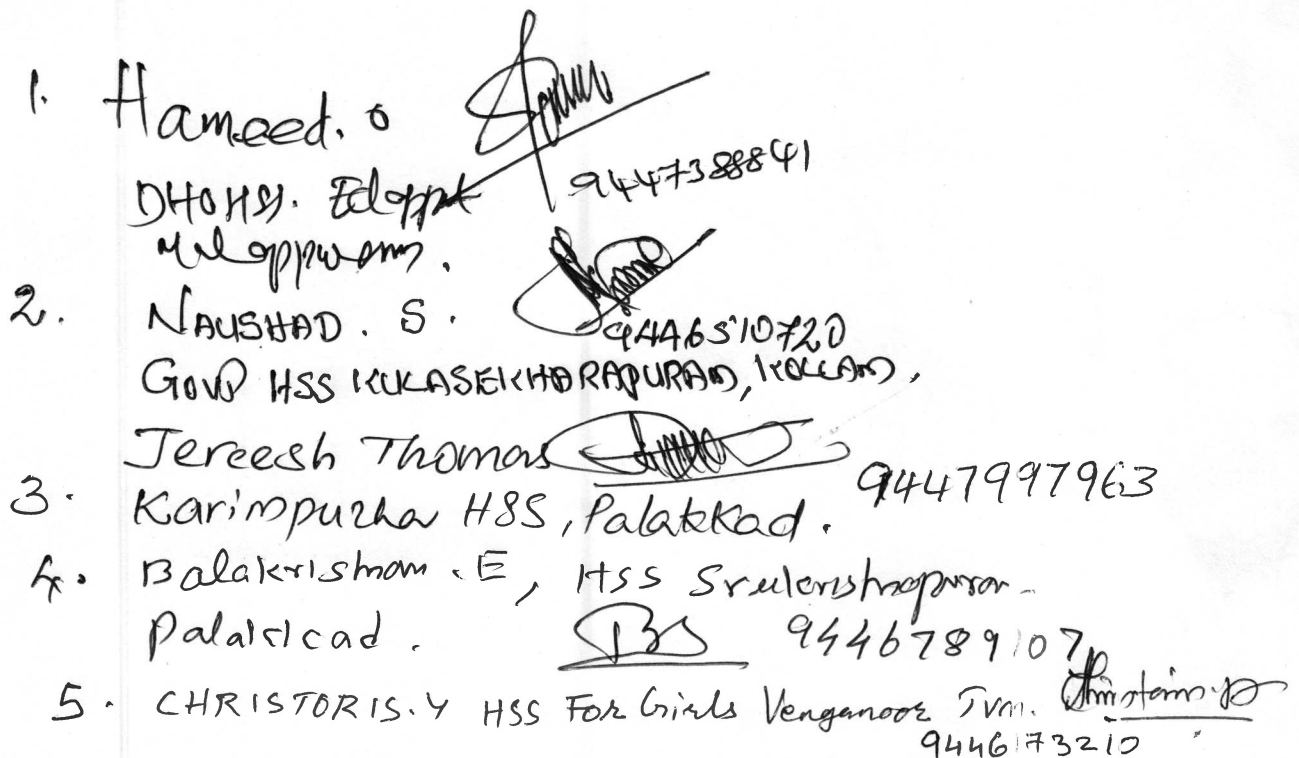 1. Hameed. O
9447388841
DHOHSS. Edappal
Malappuram.
2. NAUSHAD. S.
9446510720
GOVT HSS KULASEKHARAPURAM, KOLLAM,
Jereesh Thomas
3. Karimpuzha HSS, Palakkad. 9447997963
4. Balakrishnan. E, HSS Sreekrishnapuram
Palakkad. 9446789107
5. CHRISTORIS.Y HSS For Girls Venganoor Tvm.
9446173210